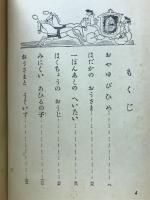 もくじ
おやゆびひめ
はだかの おうさま
一ぽんあしの へいたい
はくちょうの おうじ
みにくい あひるの子
おうさまと うぐいす